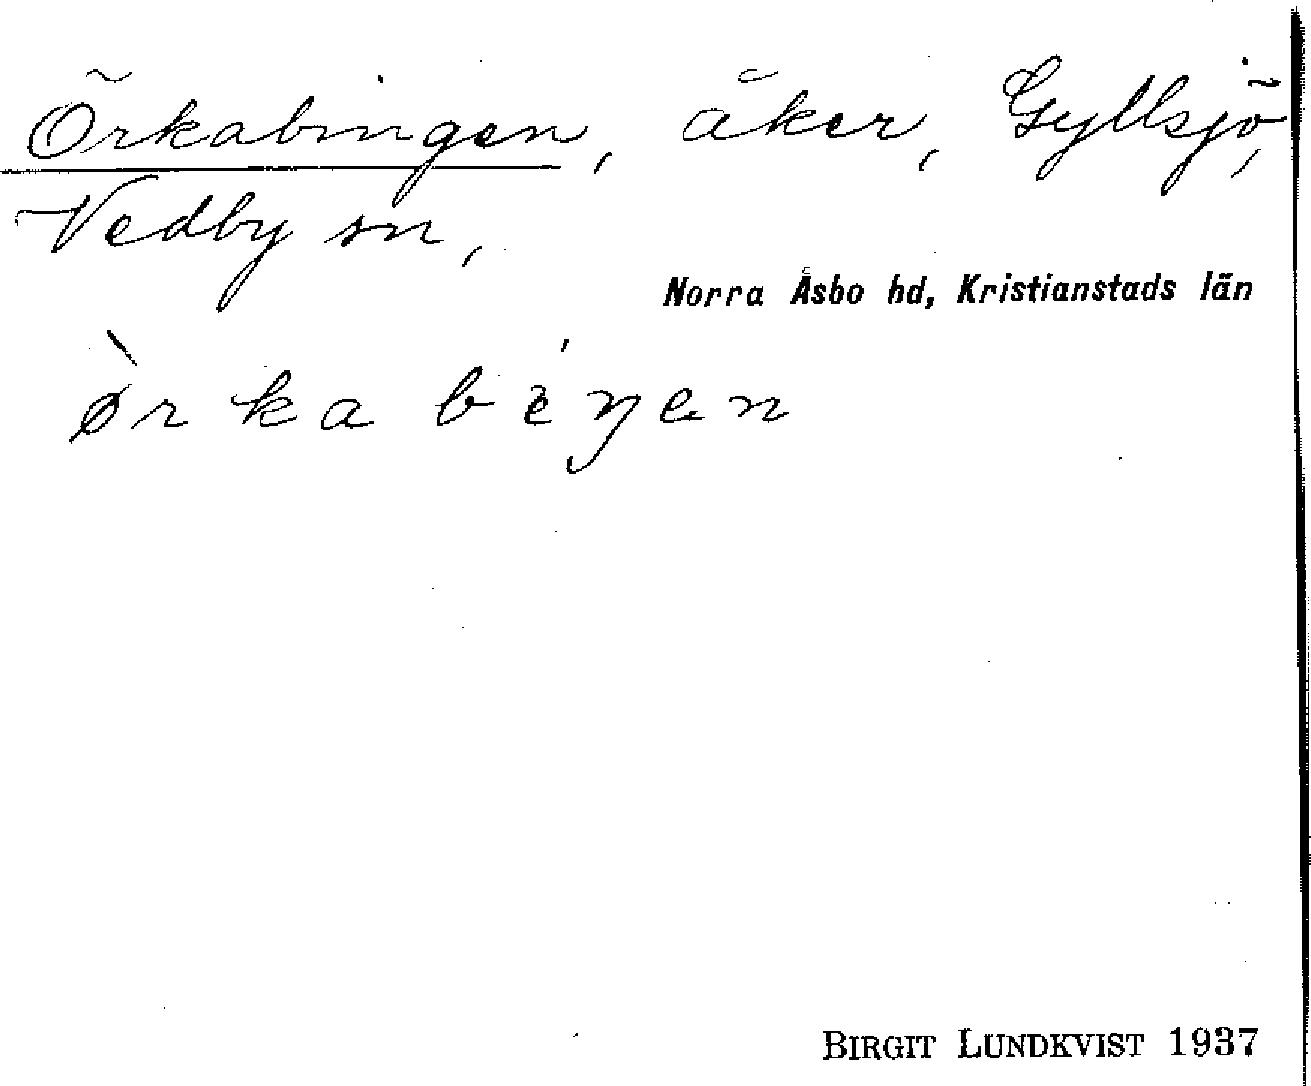 Örkabingen, åker, Gyllsjö,
Vedby sn,
Norra Åsbo hd, Kristianstads län
ø̀rkabéŋen
BIRGIT LUNDKVIST 1937